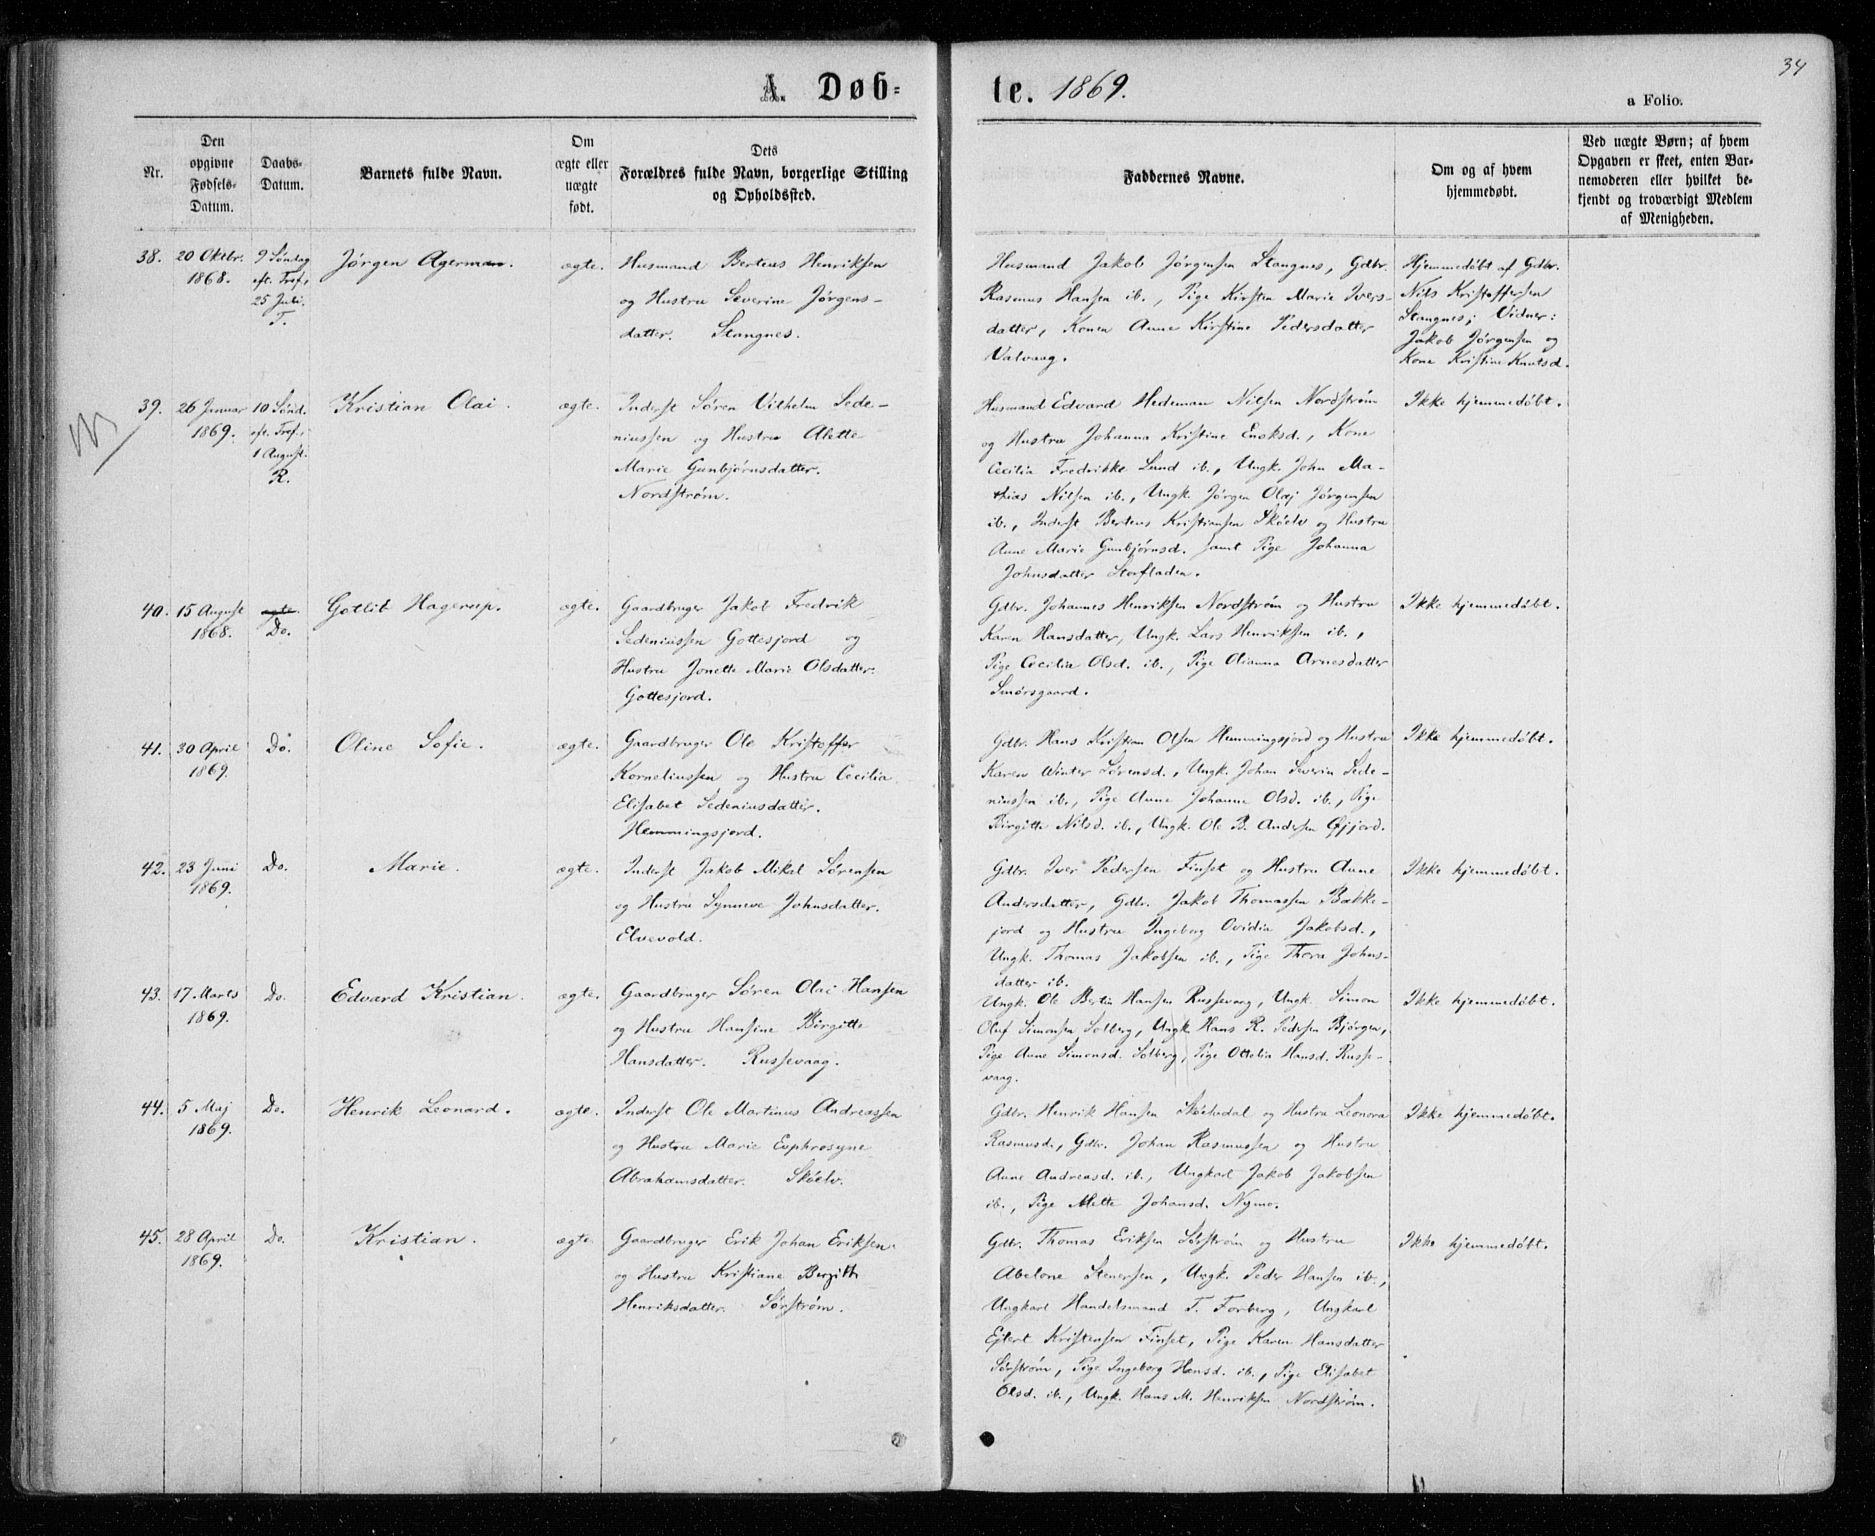 34
A. Døb-
te. 1869.
a Folio.
Nr.
Den
opgivne
Fødsels-
Datum.
Daabs-
Datum.
Barnets fulde Navn.
Om
ægte eller
uægte
født.
Dets
Forældres fulde Navn, borgerlige Stilling
og Opholdssted.
Faddernes Navne.
Om og af hvem
hjemmedøbt.
Ved uægte Børn; af hvem
Opgaven er skeet, enten Bar-
nemoderen eller hvilket be-
kjendt og troværdigt Medlem
af Menigheden.
38.
20 Oktbr.
1868.
9 Søndag
eft. Tref.,
25 Juli.
T.
Jørgen Agerman.
ægte.
Husmand Berteus Henriksen
og Hustru Severine Jørgens-
datter. Stangnes.
Husmand Jakob Jørgensen Stangnes, Gdbr.
Rasmus Hansen ib., Pige Kirsten Marie Ivers-
datter, Konen Anne Kirstine Pedersdatter
Valvaag.
Hjemmedøbt af Gdbr.
Nils Kristoffersen
Stangnes; Vidner:
Jakob Jørgensen og
Kone Kristine Knutsd.
39.
26 Januar
1869.
10 Sønd.
eft. Tref.,
1 August.
R.
Kristian Olai.
ægte.
Inderst Søren Vilhelm Sede-
niussen og Hustru Alette
Marie Gunbjørnsdatter.
Nordstrøm.
Husmand Edvard Hedeman Nilsen Nordstrøm
og Hustru Johanna Kristine Enoksd., Kone
Cecilia Fredrikke Lund ib., Ungk. John Ma-
thias Nilsen ib., Ungk. Jørgen Olaj Jørgensen
ib., Inderst Berteus Kristiansen Skøelv og Hustru
Anne Marie Gunbjørnsd. samt Pige Johanna
Johnsdatter Storfladen.
Ikke hjemmedøbt.
40.
15 August
1868.
ægte.
Do.
Gotlib Hagerup.
ægte.
Gaardbruger Jakob Fredrik
Sedeniussen Gottesjord og
Hustru Jonette Marie Olsdatter.
Gottesjord.
Gdbr. Johannes Henriksen Nordstrøm og Hustru
Karen Hansdatter, Ungk. Lars Henriksen ib.,
Pige Cecilia Olsd. ib., Pige Olianna Arnesdatter
Smørsgaard.
Ikke hjemmedøbt.
41.
30 April
1869.
Do.
Oline Sofie.
ægte.
Gaardbruger Ole Kristoffer
Korneliussen og Hustru Cecilia
Elisabet Sedeniusdatter.
Hemmingsjord.
Gdbr. Hans Kristian Olsen Hemmingsjord og Hustru
Karen Winter Sørensd., Ungk. Johan Severin Sede-
niussen ib., Pige Anne Johanne Olsd. ib., Pige
Birgitte Nilsd. ib., Ungk. Ole B. Andersen Øjjord.
Ikke hjemmedøbt.
42.
23 Juni
1869.
Do.
Marie.
ægte.
Inderst Jakob Mikal Sørensen
og Hustru Synneve Johnsdatter.
Elvevold.
Gdbr. Iver Pedersen Finset og Hustru Anne
Andersdatter, Gdbr. Jakob Thomassen Bakke-
jord og Hustru Ingeborg Ovidia Jakobsd.,
Ungk. Thomas Jakobsen ib., Pige Thora Johns-
datter ib.
Ikke hjemmedøbt.
43.
17 Marts
1869.
Do.
Edvard Kristian.
ægte.
Gaardbruger Søren Olai Hansen
og Hustru Hansine Birgitte
Hansdatter. Russevaag.
Ungk. Ole Bertin Hansen Russevaag, Ungk. Simon
Oluf Simonsen Solberg, Ungk. Hans R. Pedersen Bjørgen,
Pige Anne Simonsd. Solberg, Pige Ottolia Hansd. Russe-
vaag.
Ikke hjemmedøbt.
44.
5 Maj
1869.
Do.
Henrik Leonard.
ægte.
Inderst Ole Martinus Andreassen
og Hustru Marie Euphrosyne
Abrahamsdatter. Skøelv.
Gdbr. Henrik Hansen Skøelvdal og Hustru Leonora
Rasmusd., Gdbr. Johan Rasmussen og Hustru
Anne Andreasd. ib., Ungkarl Jakob Jakobsen
ib., Pige Mette Johansd. Nymo.
Ikke hjemmedøbt.
45.
28 April
1869.
Do.
Kristian.
ægte.
Gaardbruger Erik Johan Eriksen
og Hustru Kristiane Bergith
Henriksdatter. Sørstrøm.
Gdbr. Thomas Eriksen Sørstrøm og Hustru
Abelone Stenersen, Ungk. Peder Hansen ib.,
Ungkarl Handelsmand T. Forberg, Ungkarl
Ejlert Kristensen Finset, Pige Karen Hansdatter
Sørstrøm, Pige Ingeborg Hansd. ib., Pige Elisabet
Olsd. ib., Ungk. Hans M. Henriksen Nordstrøm.
Ikke hjemmedøbt.